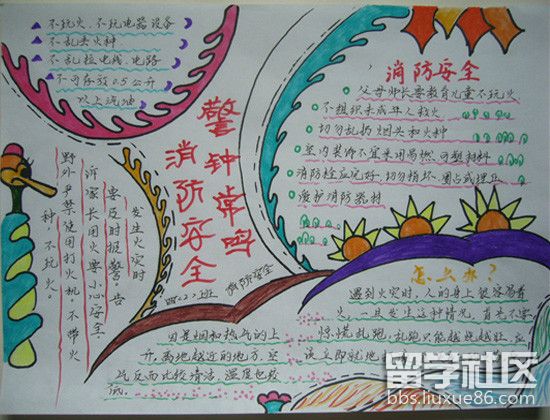 不玩火、不玩电器设备
不乱丢火种
不乱拉电线、电路
不可存放0.5公升
以上汽油
警钟常鸣
消防安全
消防安全
父母师长要教育儿童不玩火
不组织未成年人救火
切勿乱扔烟头和火种
室内装饰不宜采用易燃可塑材料
消防栓应完好,切勿损坏、圈占或埋压
爱护消防器材
发生火灾时
要及时报警。告
诉家长用火要小心安全。
野外严禁使用打火机,不带火
种不玩火。
因是烟和热气的上
升,离地越近的地方,空
气反而比较清洁,温度也较
低。
怎么办?
遇到火灾时,人的身上很容易着
火,一旦发生这种情况,首先不要
惊慌乱跑,乱跑只能越烧越旺,应
该立即就地
留学社区
bbs.liuxue86.com